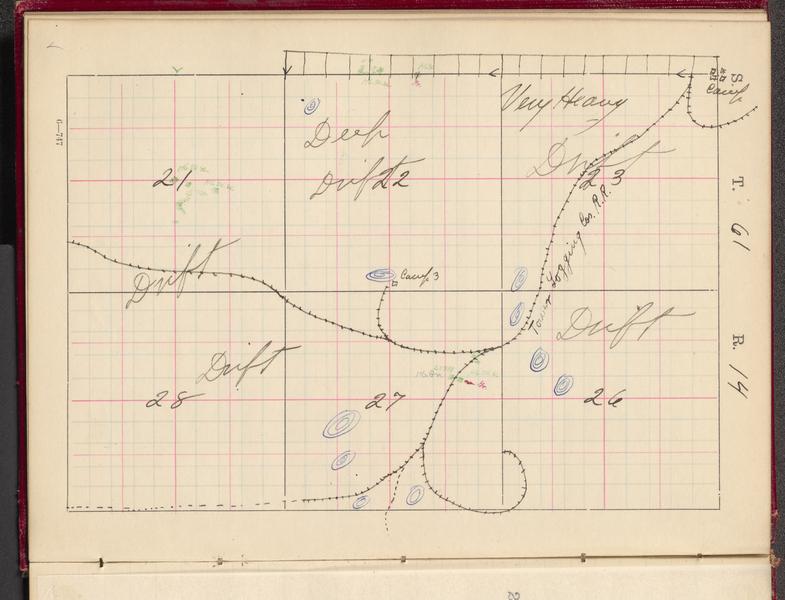 S.
Camp
Very Heavy
Drift
23
Deep
Drift
22
21
T. 61
Tower Logging Co's. R.R.
Camp 3
Drift
Drift
R. 14
Drift
28
27
26
6—747
2